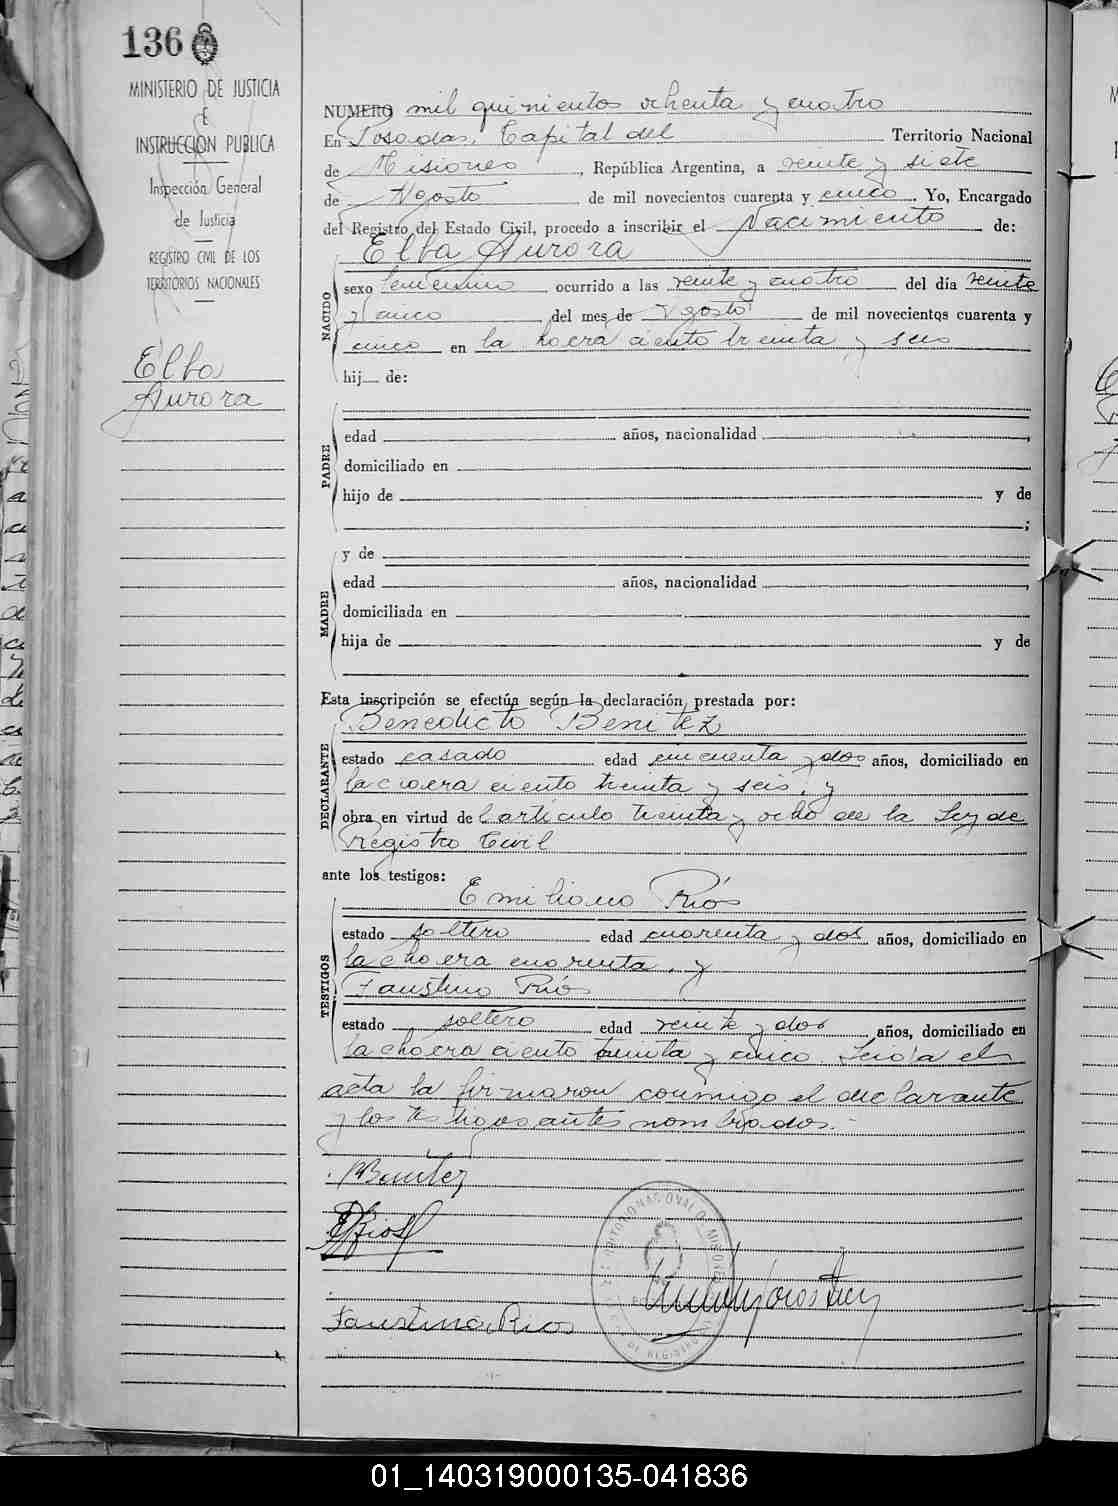 136
MINISTERIO DE JUSTICIA
E
INSTRUCCION PUBLICA
Inspección General
de Justicia
REGISTRO CIVIL DE LOS
TERRITORIOS NACIONALES
Elba
Aurora
NUMERO mil quinientos ochenta y cuatro
En Posadas, Capital del Territorio Nacional
de Misiones, República Argentina, a veinte y siete
de Agosto de mil novecientos cuarenta y cinco. Yo, Encargado
del Registro del Estado Civil, procedo a inscribir el Nacimiento de:
Elba Aurora
NACIDO
sexo femenino ocurrido a las veinte y cuatro del día veinte
y cinco del mes de Agosto de mil novecientos cuarenta y
cinco en la chacra ciento treinta y seis
hij de:
PADRE
edad años, nacionalidad ,
domiciliado en
hijo de y de
;
MADRE
y de
edad años, nacionalidad ,
domiciliada en
hija de y de
Esta inscripción se efectúa según la declaración prestada por:
Benedicto Benitez
DECLARANTE
estado casado edad cincuenta y dos años, domiciliado en
la chacra ciento treinta y seis, y
obra en virtud del artículo treinta y ocho de la Ley de
Registro Civil
ante los testigos:
Emiliano Ríos
TESTIGOS
estado soltero edad cuarenta y dos años, domiciliado en
la chacra cuarenta, y
Faustino Ríos
estado soltero edad veinte y dos años, domiciliado en
la chacra ciento treinta y cinco. Leída el
acta la firmaron conmigo el declarante
y los testigos antes nombrados.-
Benitez
E Rios
Faustino Rios
01_140319000135-041836